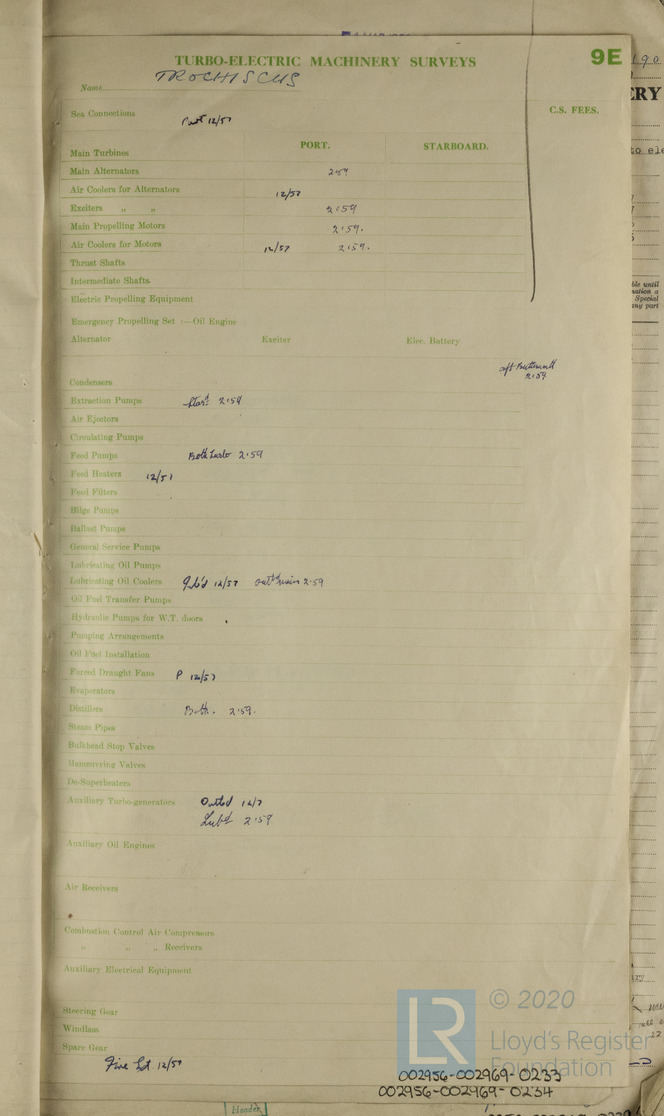 TURBO-ELECTRIC MACHINERY SURVEYS
9E
Name TROCHISCUS
C.S. FEES.
Sea Connections Part 12/57
PORT. STARBOARD.
Main Turbines
Main Alternators 2.59
Air Coolers for Alternators 12/57
Exciters „ „ 2.59
Main Propelling Motors 2.59.
Air Coolers for Motors 12/57 2.59.
Thrust Shafts
Intermediate Shafts
Electric Propelling Equipment
Emergency Propelling Set :—Oil Engine
Alternator Exciter Elec. Battery
2.59
Condensers
Extraction Pumps Star? 2.59
Air Ejectors
Circulating Pumps
Feed Pumps Both 2.59
Feed Heaters 12/57
Feed Filters
Bilge Pumps
Ballast Pumps
General Service Pumps
Lubricating Oil Pumps
Lubricating Oil Coolers 12/57 2.59
Oil Fuel Transfer Pumps
Hydraulic Pumps for W.T. doors
Pumping Arrangements
Oil Fuel Installation
Forced Draught Fans P 12/57
Evaporators
Distillers Both. 2.59.
Steam Pipes
Bulkhead Stop Valves
Manœuvring Valves
De-Superheaters
Auxiliary Turbo-generators Outbd 12/7
Inbd 2.59
Auxiliary Oil Engines
Air Receivers
Combustion Control Air Compressors
„ „ „ Receivers
Auxiliary Electrical Equipment
Steering Gear
Windlass
Spare Gear
Fire Ext 12/57
LR
© 2020
Lloyd's Register
Foundation
002956-002969-0233
002956-002969-0234
Header